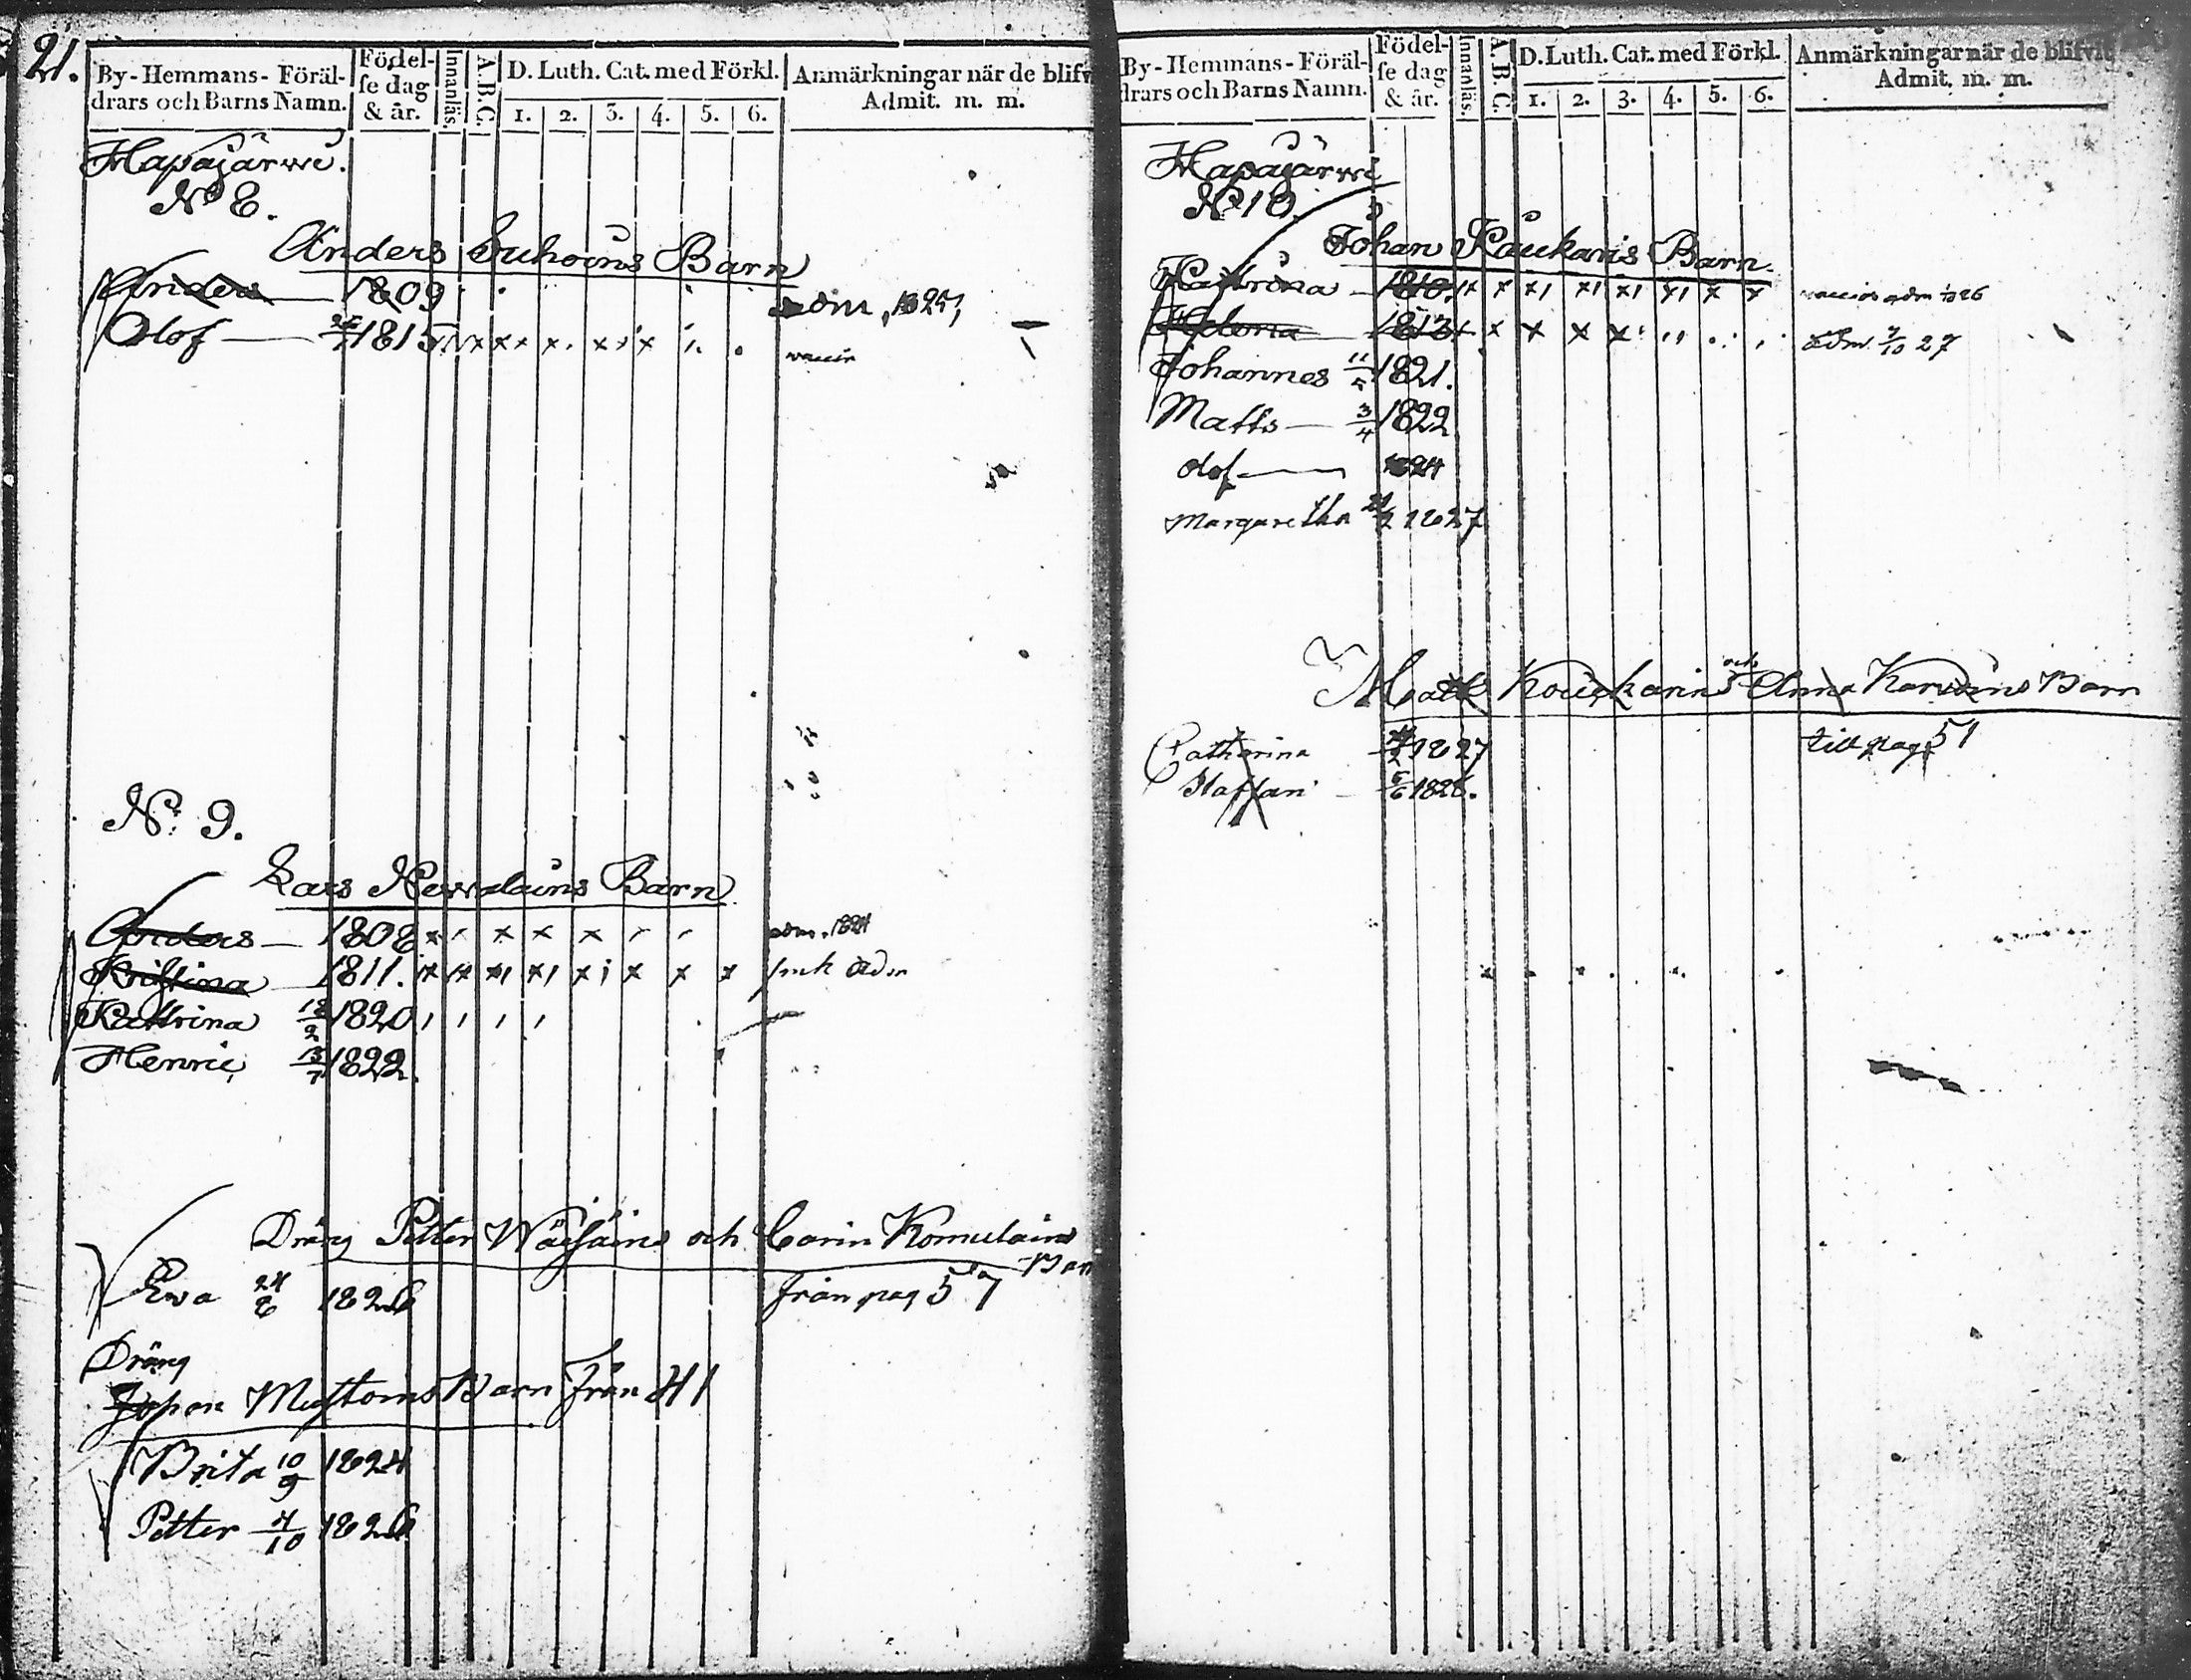 21.
By-Hemmans-Föräl-
drars och Barns Namn.
Födel-
se dag
& år.
Innanläs.
A.B.C.
D. Luth. Cat. med Förkl.
1. 2. 3. 4. 5. 6.
Anmärkningar när de blifv
Admit. m. m.
Hapajärwi.
No 8.
Anders Suhoins Barn
Anders 1809 adm, 1825,
Olof 1815 x x x x x x x vaccin
No: 9.
Lars Newalains Barn
Anders 1808 x x x x adm. 1824
Kristina 1811. x x x x x x x x adm
Kattrina 18/2 1820
Henric 13/7 1822.
Dräng Petter Wäisäins och Carin Komulains
Barn
Ewa 24/8 1826 från pag 57
Dräng
Johan Mustoins Barn från 41
Brita 10/9 1824
Petter 4/10 1826
By-Hemmans-Föräl-
drars och Barns Namn.
Födel-
se dag
& år.
Innanläs.
A.B.C.
D. Luth. Cat. med Förkl.
1. 2. 3. 4. 5. 6.
Anmärkningar när de blifvit
Admit. m. m.
Hapajärwi
No 10.
Johan Kaukaris Barn.
Kattrina 1810. x x x x x x x x adm 26
Helena 1813 x x x x x adm 7/10 27
Johannes 11/5 1821.
Matts 3/4 1822
Olof 1824
Margaretha 1827
Matts Koukarins och Anna Karwins Barn
Catharina 1827 till pag 51
Staffan 5/6 1826.